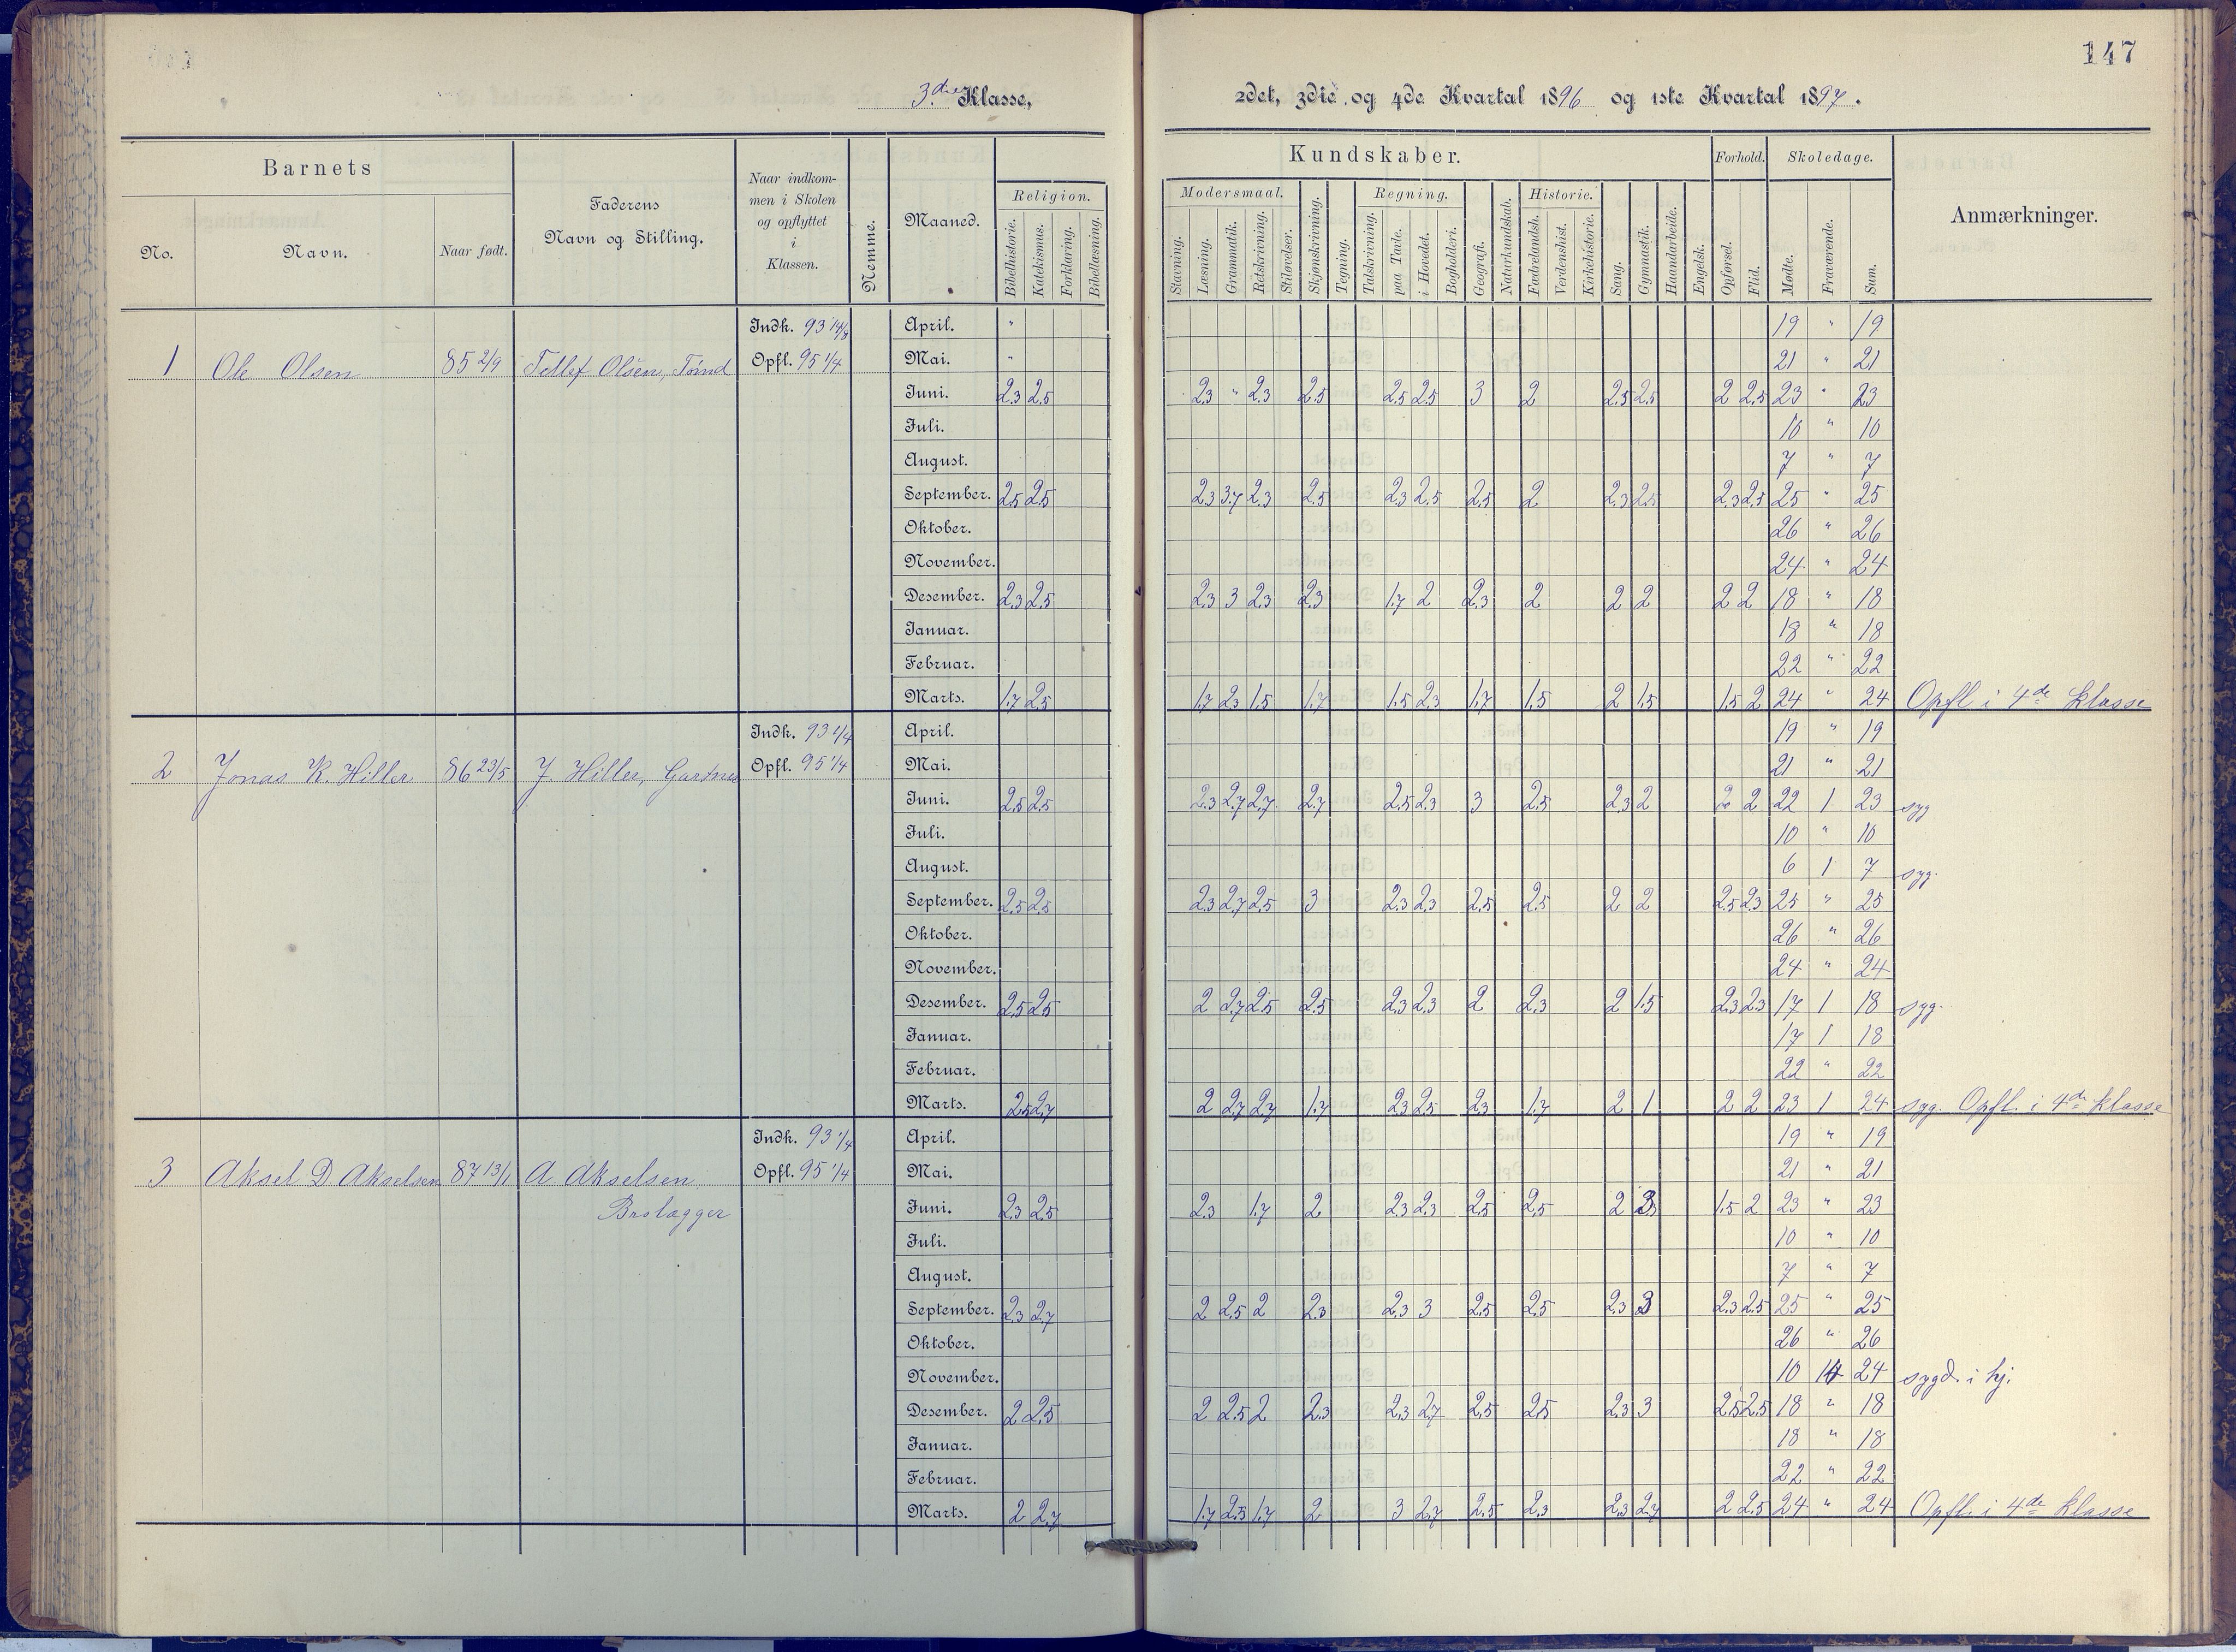 147
3die Klasse,
2det, 3die og 4de Kvartal 1896 og 1ste Kvartal 1897.
Barnets
No.
Navn.
Naar født.
Faderens
Navn og Stilling.
Naar indkom-
men i Skolen
og opflyttet
i
Klassen.
Nemme.
Maaned.
Religion.
Bibelhistorie.
Katekismus.
Forklaring.
Bibellæsning.
Kundskaber.
Modersmaal.
Stavning.
Læsning.
Grammatik.
Retskrivning.
Stiløvelser.
Skjønskrivning.
Tegning.
Regning.
Talskrivning.
paa Tavle.
i Hovedet.
Bogholderi.
Geografi.
Naturkundskab.
Historie.
Fædrelandsh.
Verdenshist.
Kirkehistorie.
Sang.
Gymnastik.
Haandarbeide.
Engelsk.
Forhold.
Opførsel.
Flid.
Skoledage.
Mødte.
Fraværende.
Sum.
Anmærkninger.
1 Ole Olsen 85 2/9 Tellef Olsen,
Indk. 93 14/8
Opfl. 95 1/4
April. " 19 " 19
Mai. " 21 " 21
Juni. 2.3 2.5 2.3 " 2.3 2.5 2.5 2.5 3 2 2.5 2.5 2 2.5 23 " 23
Juli. 10 " 10
August. 7 " 7
September. 2.5 2.5 2.3 3.7 2.3 2.5 2.3 2.5 2.5 2 2.3 2.5 2.3 2.5 25 " 25
Oktober. 26 " 26
November. 24 " 24
Desember. 2.3 2.5 2.3 3 2.3 2.3 1.7 2 2.3 2 2 2 2 2 18 " 18
Januar. 18 " 18
Februar. 22 " 22
Marts. 1.7 2.5 1.7 2.3 1.5 1.7 1.5 2.3 1.7 1.5 2 1.5 1.5 2 24 " 24 Opfl i 4de klasse
2 Jonas K. Hiller 86 23/5 J. Hiller, Gartner
Indk. 93 1/4
Opfl. 95 1/4
April. 19 " 19
Mai. 21 " 21
Juni. 2.5 2.5 2.3 2.7 2.7 2.7 2.5 2.3 3 2.5 2.3 2 2 2 22 1 23 syg
Juli. 10 " 10
August. 6 1 7 syg.
September. 2.5 2.5 2.3 2.7 2.5 3 2.3 2.3 2.5 2.5 2 2 2.5 2.3 25 " 25
Oktober. 26 " 26
November. 24 " 24
Desember. 2.5 2.5 2 2.7 2.5 2.5 2.3 2.3 2 2.3 2 1.5 2.3 2.3 17 1 18 syg.
Januar. 17 1 18
Februar. 22 " 22
Marts. 2.5 2.7 2 2.7 2.7 1.7 2.3 2.5 2.3 1.7 2 1 2 2 23 1 24 syg. Opfl. i 4de klasse
3 Aksel D Akselsen 87 13/1 A Akselsen
Brolægger
Indk. 93 1/4
Opfl. 95 1/4
April. 19 " 19
Mai. 21 " 21
Juni. 2.3 2.5 2.3 1.7 2 2.3 2.3 2.5 2.5 2 3 1.5 2 23 " 23
Juli. 10 " 10
August. 7 " 7
September. 2.3 2.7 2 2.5 2 2.3 2.3 3 2.5 2.5 2.3 3 2.3 2.5 25 " 25
Oktober. 26 " 26
November. 10 14 24 sygd. i hj.
Desember. 2 2.5 2 2.5 2 2.3 2.3 2.7 2.5 2.5 2.3 3 2.5 2.5 18 " 18
Januar. 18 " 18
Februar. 22 " 22
Marts. 2 2.7 1.7 2.5 1.7 2 3 2.7 2.5 2.3 2.3 2.7 2 2.5 24 " 24 Opfl. i 4de klasse